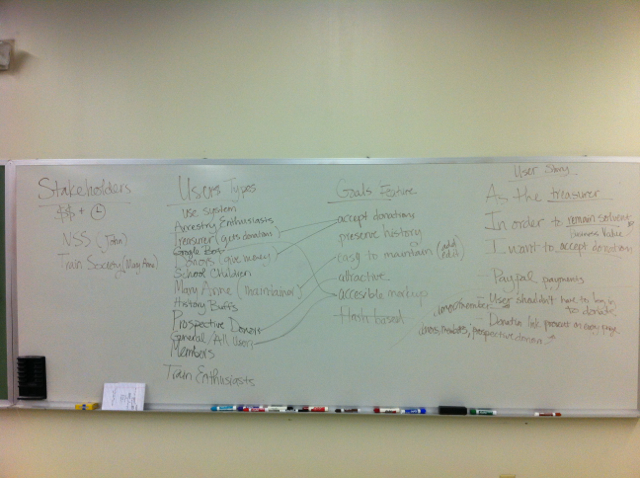 Stakeholders
$$$ +
NSS (John)
Train Society (Mary Anne)
Users Types
use system
Ancestry Enthusiasts
Treasurer (gets donation)
Google Bot
Donors (give money)
School Children
Mary Anne (maintainer)
History Buffs
Prospective Donors
General / All Users
Members
Train Enthusiasts
Goals Feature
accept donations
preserve history
easy to maintain (add edit)
attractive
accesible markup
Flash based
User Story
As the treasurer
In order to remain solvent
business value
I want to accept donations
- Paypal payments
- User shouldn't have to log in
to donate
- Donation link present on every page